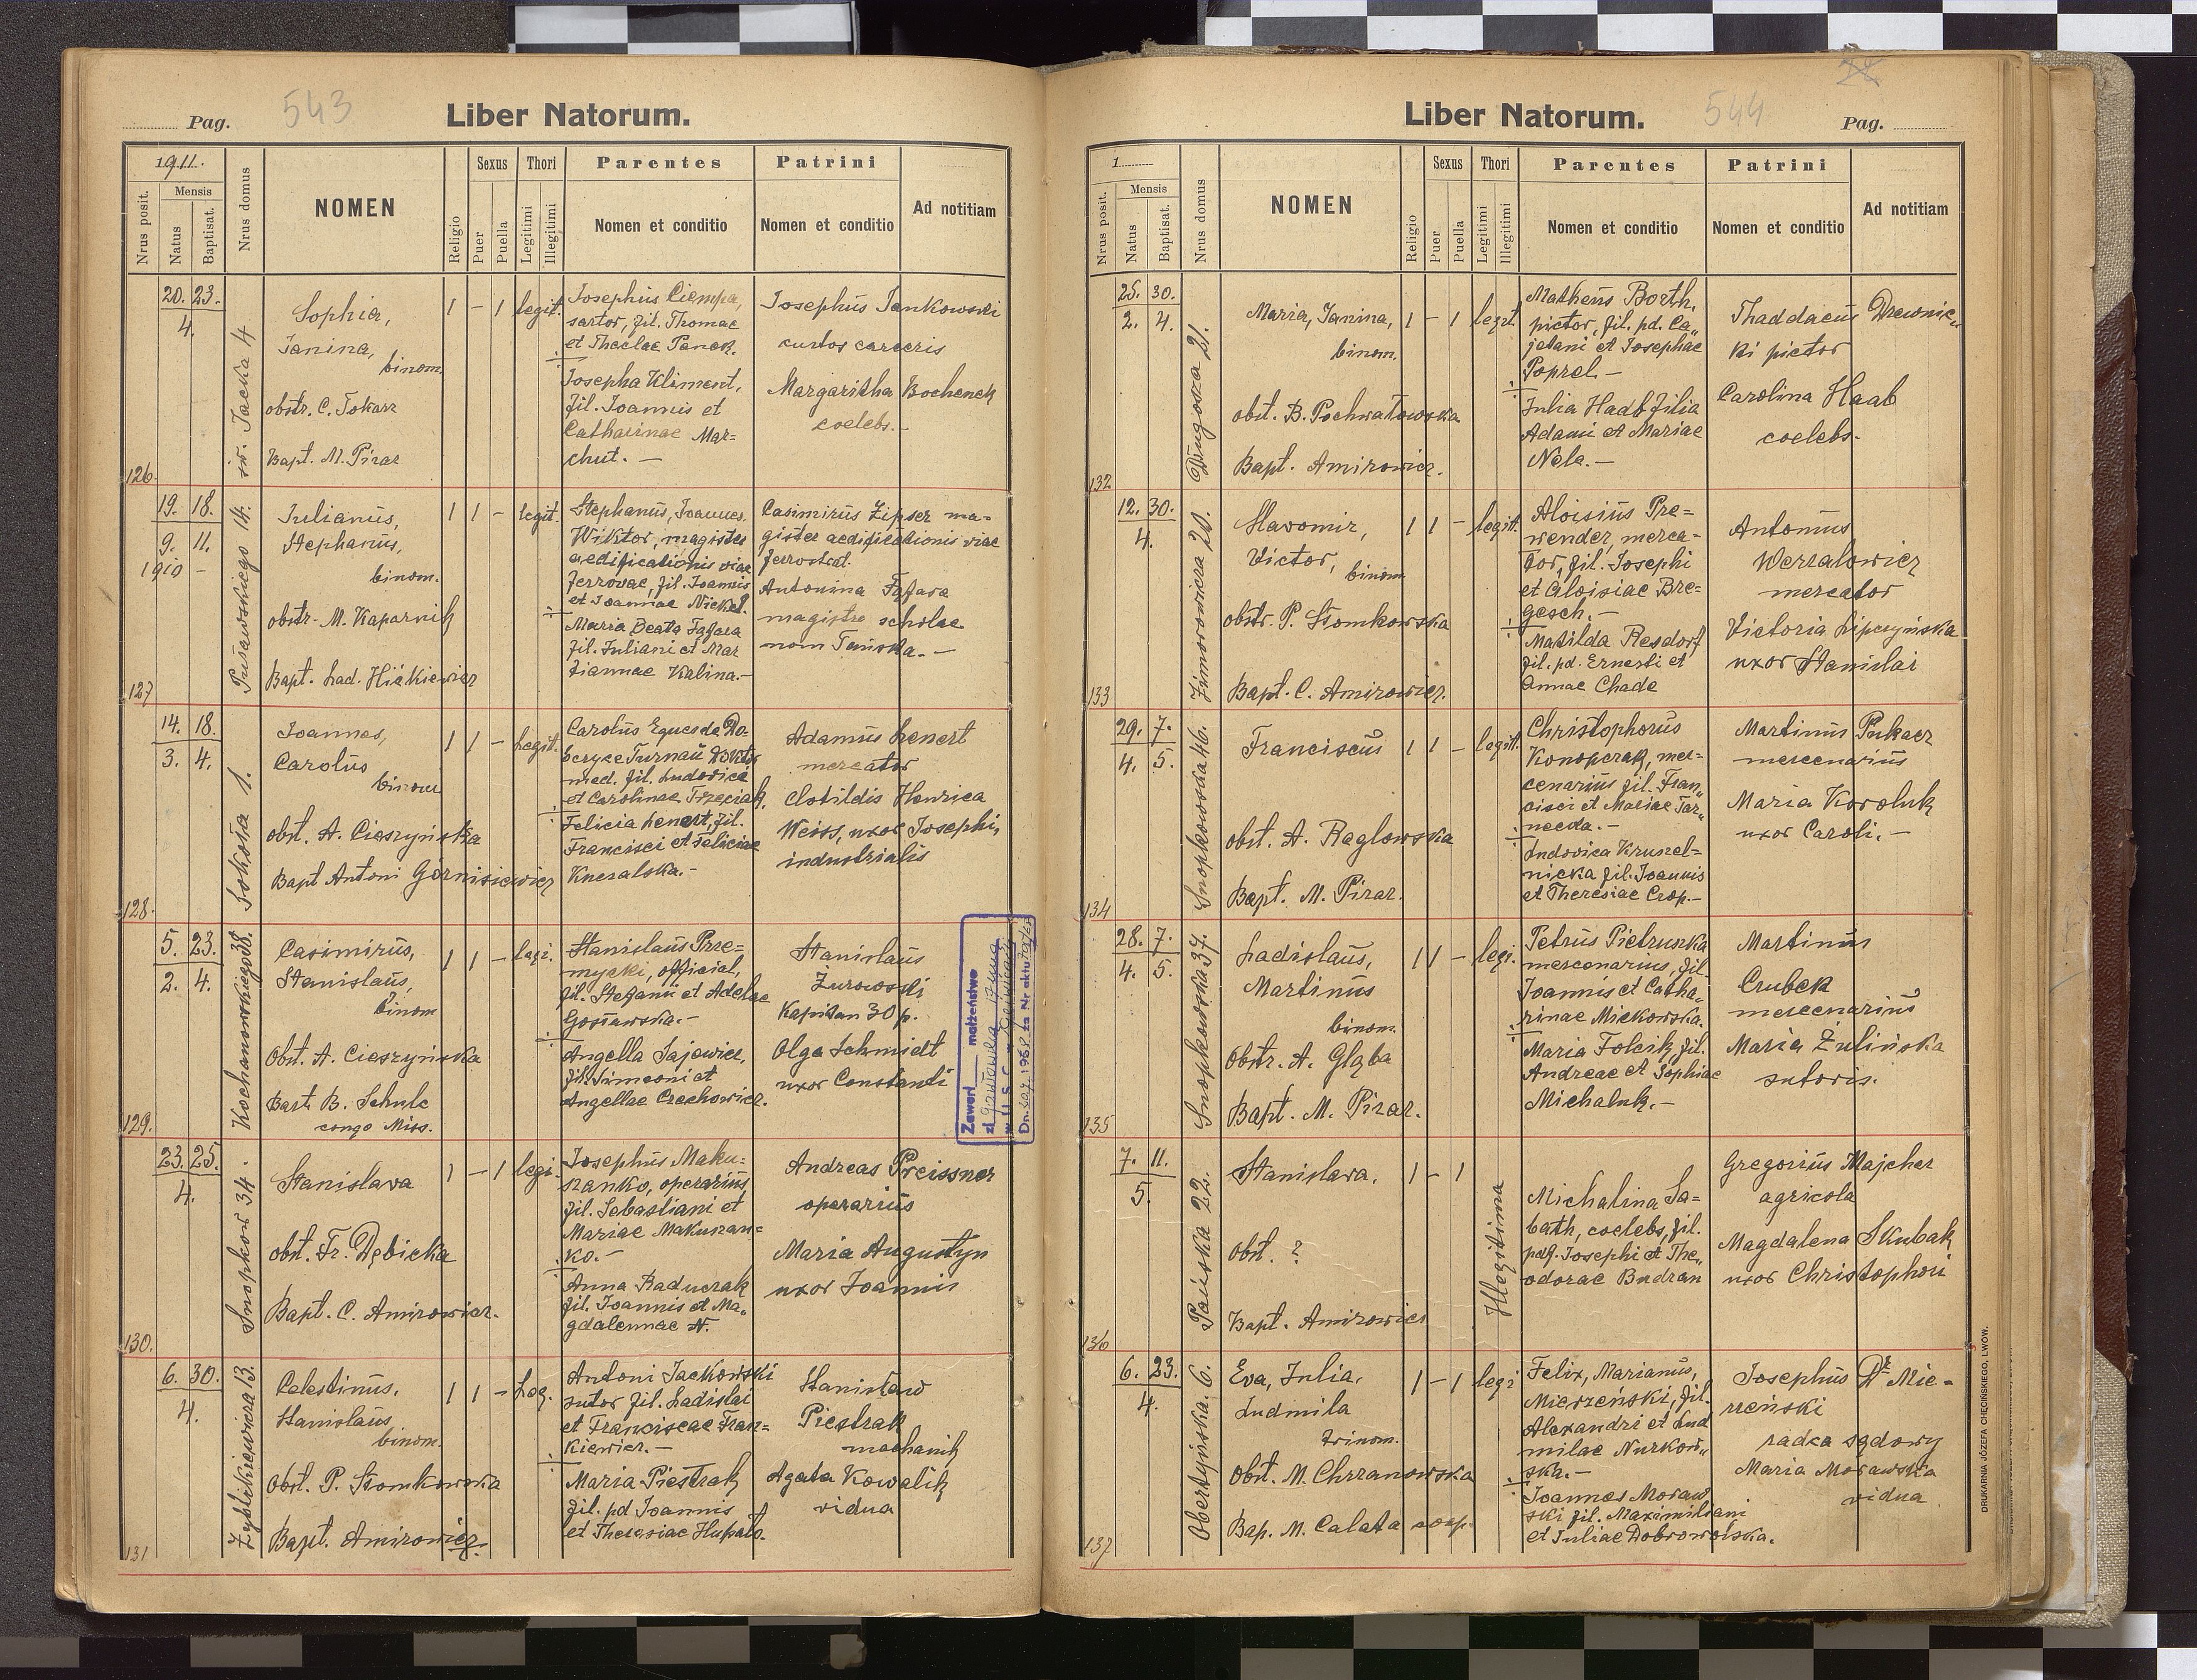 Pag. 543
Liber Natorum.
1911.
Nrus posit.
Mensis
Natus
Baptisat.
Nrus domus
NOMEN
Religio
Sexus
Puer
Puella
Thori
Legitimi
Illegitimi
Parentes
Nomen et conditio
Patrini
Nomen et conditio
Ad notitiam
126.
20. 23.
4.
św. Jacka 4
Sophia,
Janina,
binom.
obstr. C. Tokarz
Bapt. M. Pirar
1 - 1 legit.
Josephus Ciempa,
sartor, fil. Thomae
et Theclae Panek.
Josepha Kliment,
fil. Joannis et
Catharinae Mar=
chut. —
Josephus Jankowski
custos carceris
Margaritha Bochenek
coelebs.-
127
19. 18.
9. 11.
1910 -
Pułaskiego 14.
Julianus,
Stephanus,
binom.
obstr. M. Kaparnik
Bapt. Lad.
1 1 - legit.
Stephanus, Joannes
Wiktor, magister
aedificationis viae
ferrovae, fil. Joannis
et Joannae Nickel.
Maria Beata Fafara
fil. Juliani et Mar
Kalina.-
Casimirus Zipser ma-
gister aedificationis viae
Antonina Fafara
magistra scholae
128.
14. 18.
3. 4.
Sokoła 1.
Joannes,
Carolus
binom
obst. A. Cieszyńska
Bapt Antoni
1 1 - Legit.
Carolus Eques de Do-
Turnau Doktor
med. fil. Ludovici
et Carolinae Trzeciak.
Felicia Lenert, fil.
Francisci et Feliciae
Adamus Lenert
mercator
Clotildis Henrica
Weiss, uxor Josephi,
industrialis
129.
5. 23.
2. 4.
Kochanowskiego 38.
Casimirus,
Stanislaus,
binom
Obst. A. Cieszyńska
Bapt. B. Schulc
congo Miss.
1 1 - legi.
Stanislaus Prze=
mycki, official,
fil. Stefanii et Adelae
Gosławska.-
Angella Sajewicz,
fil. Simeoni et
Angellae Czechowicz.
Stanislaus
Żurowski
Kapitan 30 p.
Olga Schmidt
uxor Constanti
Zawarł małżeństwo
w U.S.C.
Dn. 1968 za Nr aktu
130.
23. 25.
4.
Snopków 34.
Stanislava
obst. Fr. Dębicka
Bapt. C. Amirowicz.
1 - 1 legi.
Josephus Maku=
szanko, operarius
fil. Sebastiani et
Mariae Makuszan=
ko.-
Anna Baduczak
fil. Joannis et Ma„
gdalennae N.
Andreas Preissner
operarius
Maria Augustyn
uxor Joannis
131
6. 30.
4.
Zyblikiewicza 13.
Celestinus,
Stanislaus,
binom.
Obst. P. Słomkowska
Bapt. Amirowicz.
1 1 - Leg.
Antoni Jackowski
sutor fil. Ladislai
et Franciscae Fran=
kiewicz.-
Maria Piestrak
fil. pd Joannis
et Theresiae Hupało.
Stanisław
Piestrak
mechanik
Agata Kowalik
vidua
Liber Natorum.
544
Pag.
1
Nrus posit.
Mensis
Natus
Baptisat.
Nrus domus
NOMEN
Religio
Sexus
Puer
Puella
Thori
Legitimi
Illegitimi
Parentes
Nomen et conditio
Patrini
Nomen et conditio
Ad notitiam
132
25. 30.
2. 4.
Długosza 21.
Maria, Janina,
binom.
obst. B. Pochwatowska
Bapt. Amirowicz.
1 - 1 legit.
Matheus Borth,
pictor, fil. pd. Ca„
jetani et Josephae
Poprel.-
Julia Haab filia
Adami et Mariae
Nela.-
Thaddaeus Drewnic„
ki pictor
Carolina Haab
coelebs-
133
12. 30.
4.
Zimorowicza 20.
Slavomir,
Victor, binom
obstr. P. Słomkowska
Bapt. C. Amirowicz.
1 1 - legit.
Aloisius Pre=
wender, merca-
tor, fil. Josephi
et Aloisiae Bre=
gesch.-
Matilda Resdorf
fil. pd. Ernesti et
Annae Chade
Antonius
Werzalowicz
mercator
Victoria Lipczyńska
uxor Stanislai
134
29. 7.
4. 5.
Snopkowska 46.
Franciscus
obst. A. Raglowska
Bapt. M. Pirar.
1 1 - legit.
Christophorus
Konopczak, mer=
cenarius fil. Fran„
cisci et Mariae Tar„
Ludovica Kruszel=
nicka fil. Joannis
et Theresiae Czop.-
Martinus Pukacz
mercenarius
Maria Koroluk
uxor Caroli.-
135
28. 7.
4. 5.
Snopkowska 37.
Ladislaus,
Martinus
binom.
Obstr. A. Głąba
Bapt. M. Pirar.
1 1 - legi.
Petrus Pietruszka
mercenarius, fil.
Joannis et Catha„
rinae Mickowska.
Maria Folcik, fil.
Andreae et Sophiae
Michaluk.-
Martinus
Czubek
mercenarius
Maria Żulińska
sutoris.
136
7. 11.
5.
Pańska 22.
Stanislava,
Obst. ?
Bapt. Amirowicz
1 - 1
Illegitima
Michalina Sa=
bath, coelebs, fil.
pdf. Josephi et The„
odorae Budzan
Gregorius Majcher
agricola
Magdalena Skubak
uxor Christophori
137
6. 23.
4.
Obertyńska. 6.
Eva, Julia,
Ludmila
trinom.
Obst. M. Chrzanowska
Bap. M. Calata coop.
1 - 1 legi
Felix, Marianus,
Mierzeński, fil.
Alexandri et Lud
milae Nurkow„
ska.-
Joannes Moraw
ski fil. Maximiliani
et Juliae Dobrowolska.
Josephus Dr Mie-
rzeński
radca sądowy
Maria Morawska
vidua
DRUKARNIA JÓZEFA CHĘCIŃSKIEGO, LWÓW.